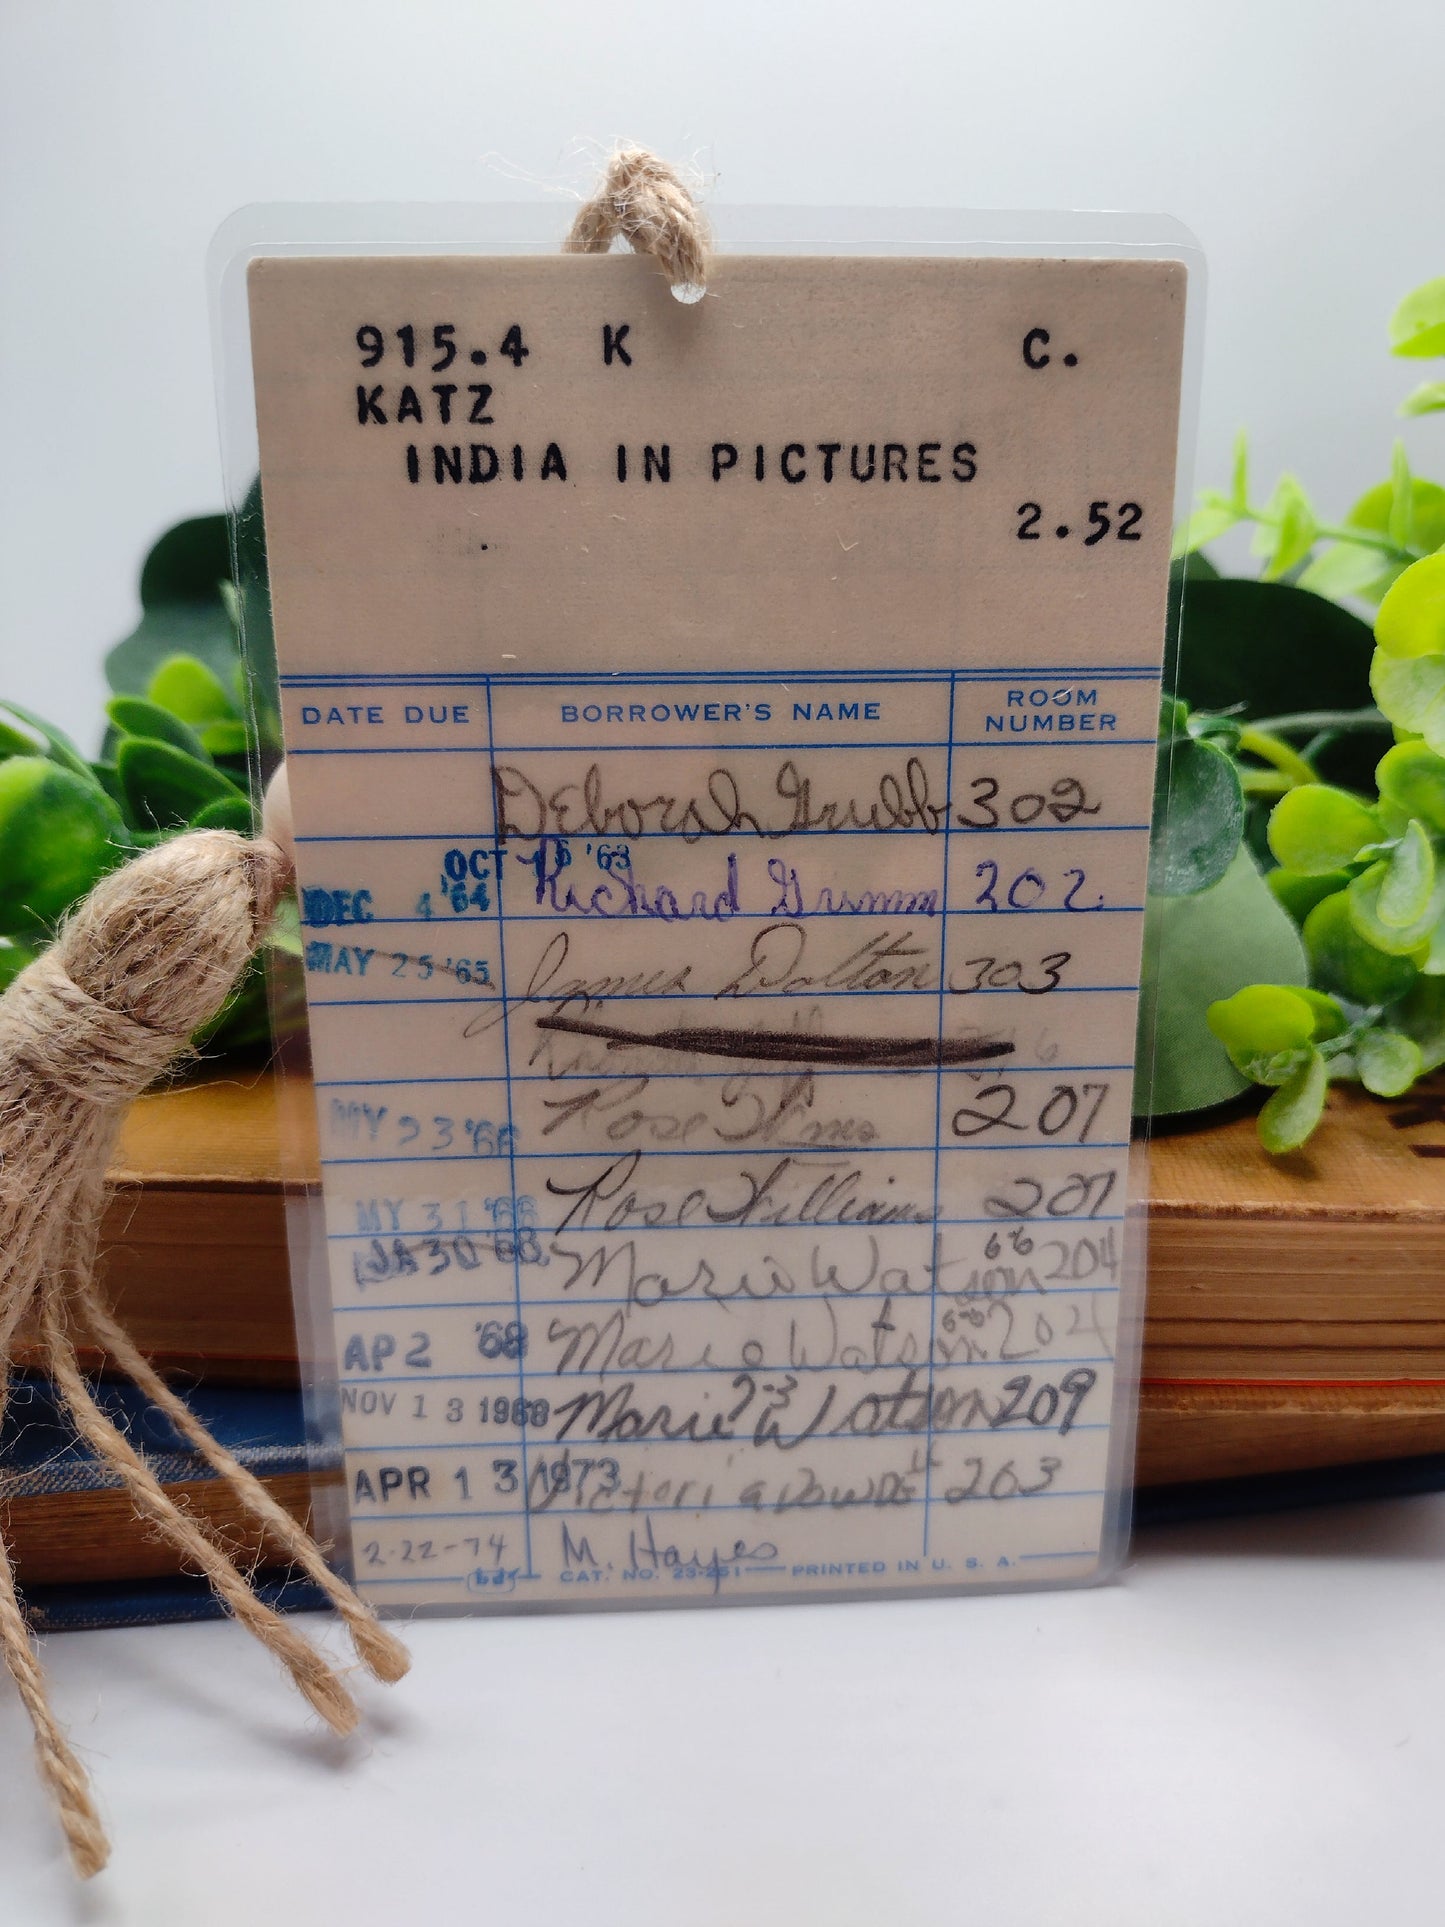 915.4 K C.
KATZ
INDIA IN PICTURES
2.52
DATE DUE BORROWER'S NAME ROOM NUMBER
Deborah Grubb 302
OCT 16 '63
DEC 4 '64 Richard Grimm 202
MAY 25 '65 James Dalton 303
MY 23 '66 Rose Wms 207
MY 31 '66 Rose Williams 207
JA 30 '68 Marie Watson 6-6 204
AP 2 '68 Marie Watson 6-6 204
NOV 13 1968 Marie Watson 7-3 209
APR 13 1973 Victoria 263
2-22-74 M. Hayes
CAT. NO. 23-251 PRINTED IN U. S. A.